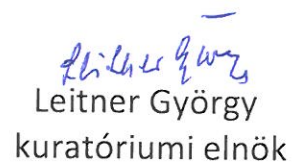 Leitner György
Leitner György
kuratóriumi elnök